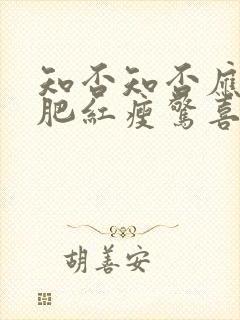 知否知否應
肥紅瘦驚喜
胡善安